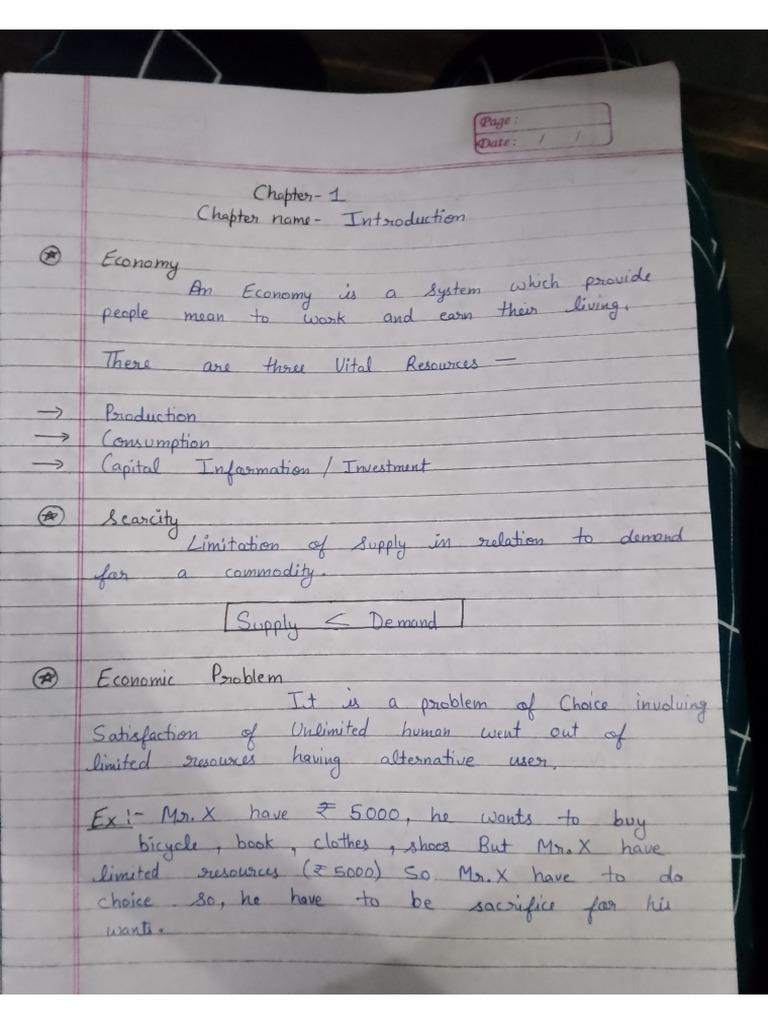 Page :
Date : / /
Chapter - 1
Chapter name - Introduction
Economy
An Economy is a system which provide
people mean to work and earn their living.
There are three Vital Resources —
→ Production
→ Consumption
→ Capital Information / Investment
Scarcity
Limitation of supply in relation to demand
for a commodity.
Supply < Demand
Economic Problem
It is a problem of Choice involving
Satisfaction of Unlimited human went out of
limited resources having alternative user.
Ex :- Mr. X have ₹ 5000, he wants to buy
bicycle, book, clothes, shoes But Mr. X have
limited resources (₹ 5000) So Mr. X have to do
choice. So, he have to be sacrifice for his
wants.